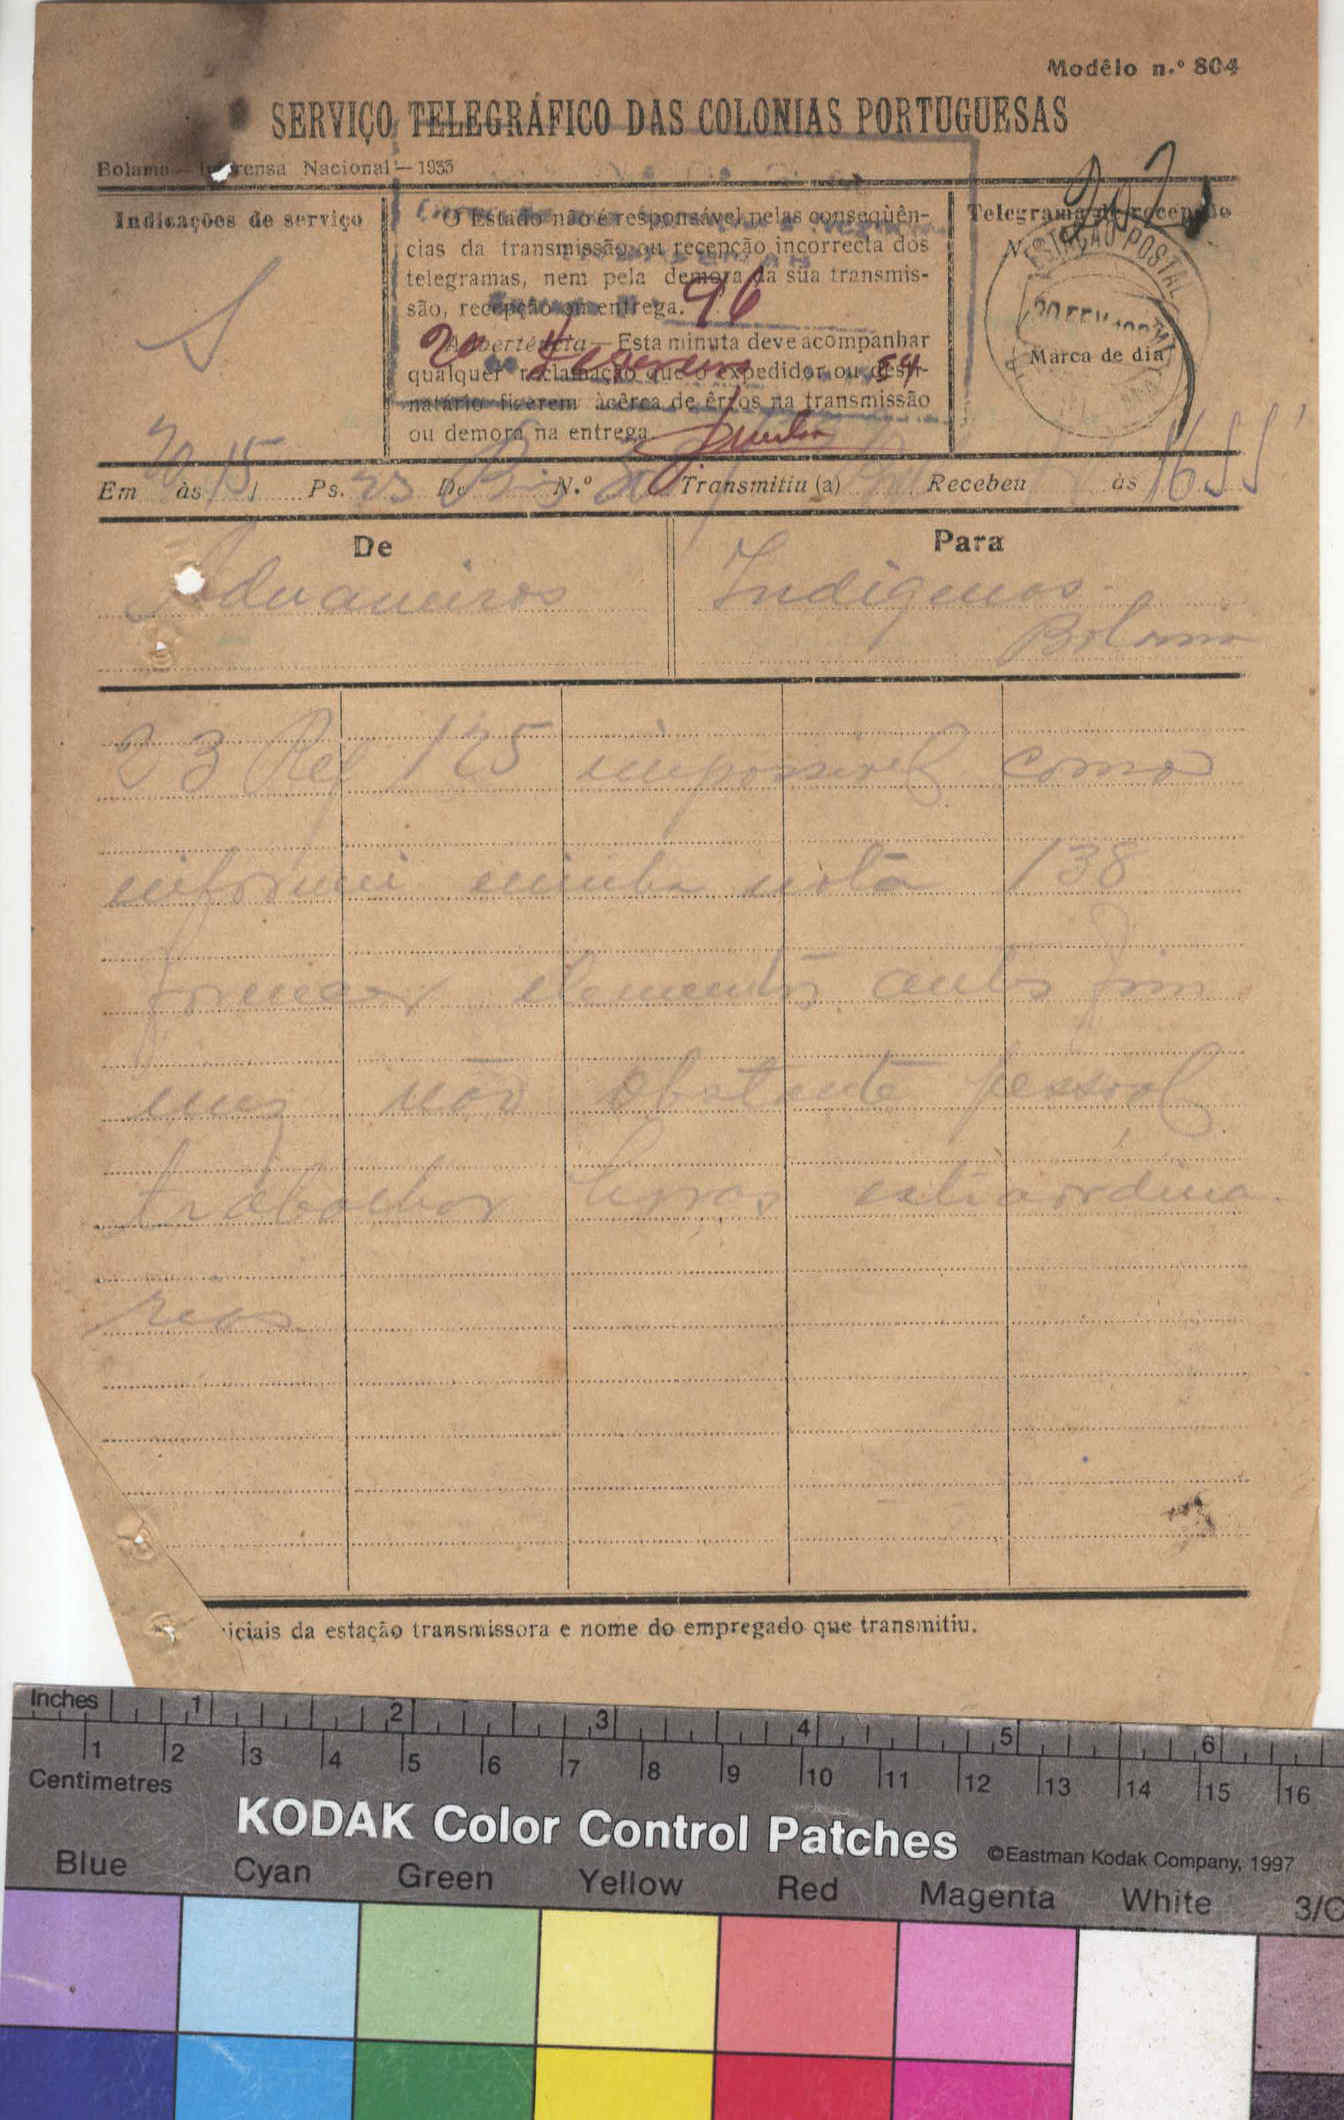 Modêlo n.º 804
SERVIÇO TELEGRÁFICO DAS COLONIAS PORTUGUESAS
Bolama — Imprensa Nacional — 1933
Indicações de serviço
O Estado não é responsável pelas conseqüên-
cias da transmissão ou recepção incorrecta dos
telegramas, nem pela demora da sua transmis-
são, recepção ou entrega.
96
Advertência — Esta minuta deve acompanhar
qualquer reclamação que o expedidor ou desti-
natário fizerem àcêrca de êrros na transmissão
ou demora na entrega.
20 Fevereiro 34
Telegrama de recepção
N.º 202
ESTAÇÃO POSTAL
20 FEV
Marca de dia
Em 20 às 15 Ps. 23 De N.º Transmitiu (a) Recebeu às 1655
De
Para
Aduaneiros
Indigenas
Bolama
23 Ref 125 impossivel como
informei minha nota 138
fornecer elementos antes fim
mez não obstante pessoal
trabalhar horas extraordina
rias
iciais da estação transmissora e nome do empregado que transmitiu.
Inches 1 2 3 4 5 6
1 2 3 4 5 6 7 8 9 10 11 12 13 14 15 16
Centimetres
KODAK Color Control Patches ©Eastman Kodak Company, 1997
Blue Cyan Green Yellow Red Magenta White 3/C